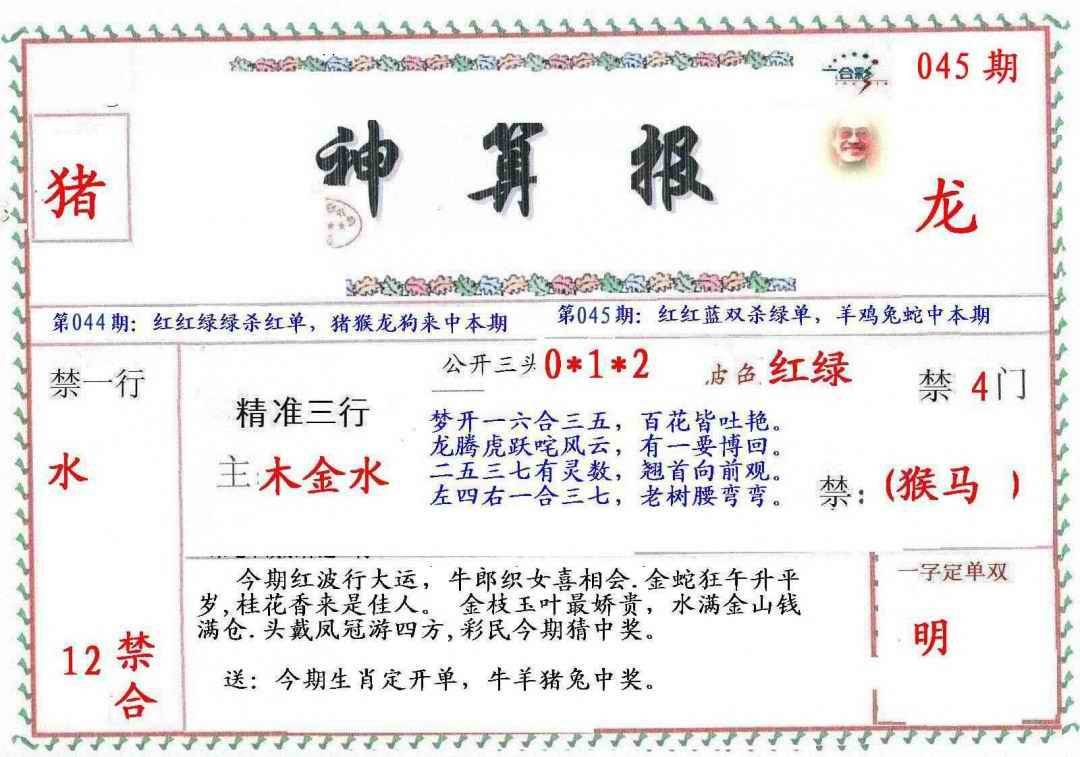 045 期
合彩
猪
神算报
龙
第044期：红红绿绿杀红单，猪猴龙狗来中本期
第045期：红红蓝双杀绿单，羊鸡兔蛇中本期
禁一行
水
12 禁合
精准三行
主:木金水
公开三头 0*1*2
波色 红绿
梦开一六合三五，百花皆吐艳。
龙腾虎跃咤风云，有一要博回。
二五三七有灵数，翘首向前观。
左四右一合三七，老树腰弯弯。
禁 4门
禁：(猴马 )
今期红波行大运，牛郎织女喜相会.金蛇狂午升平
岁,桂花香来是佳人。 金枝玉叶最娇贵，水满金山钱
满仓.头戴凤冠游四方,彩民今期猜中奖。
送：今期生肖定开单，牛羊猪兔中奖。
一字定单双
明